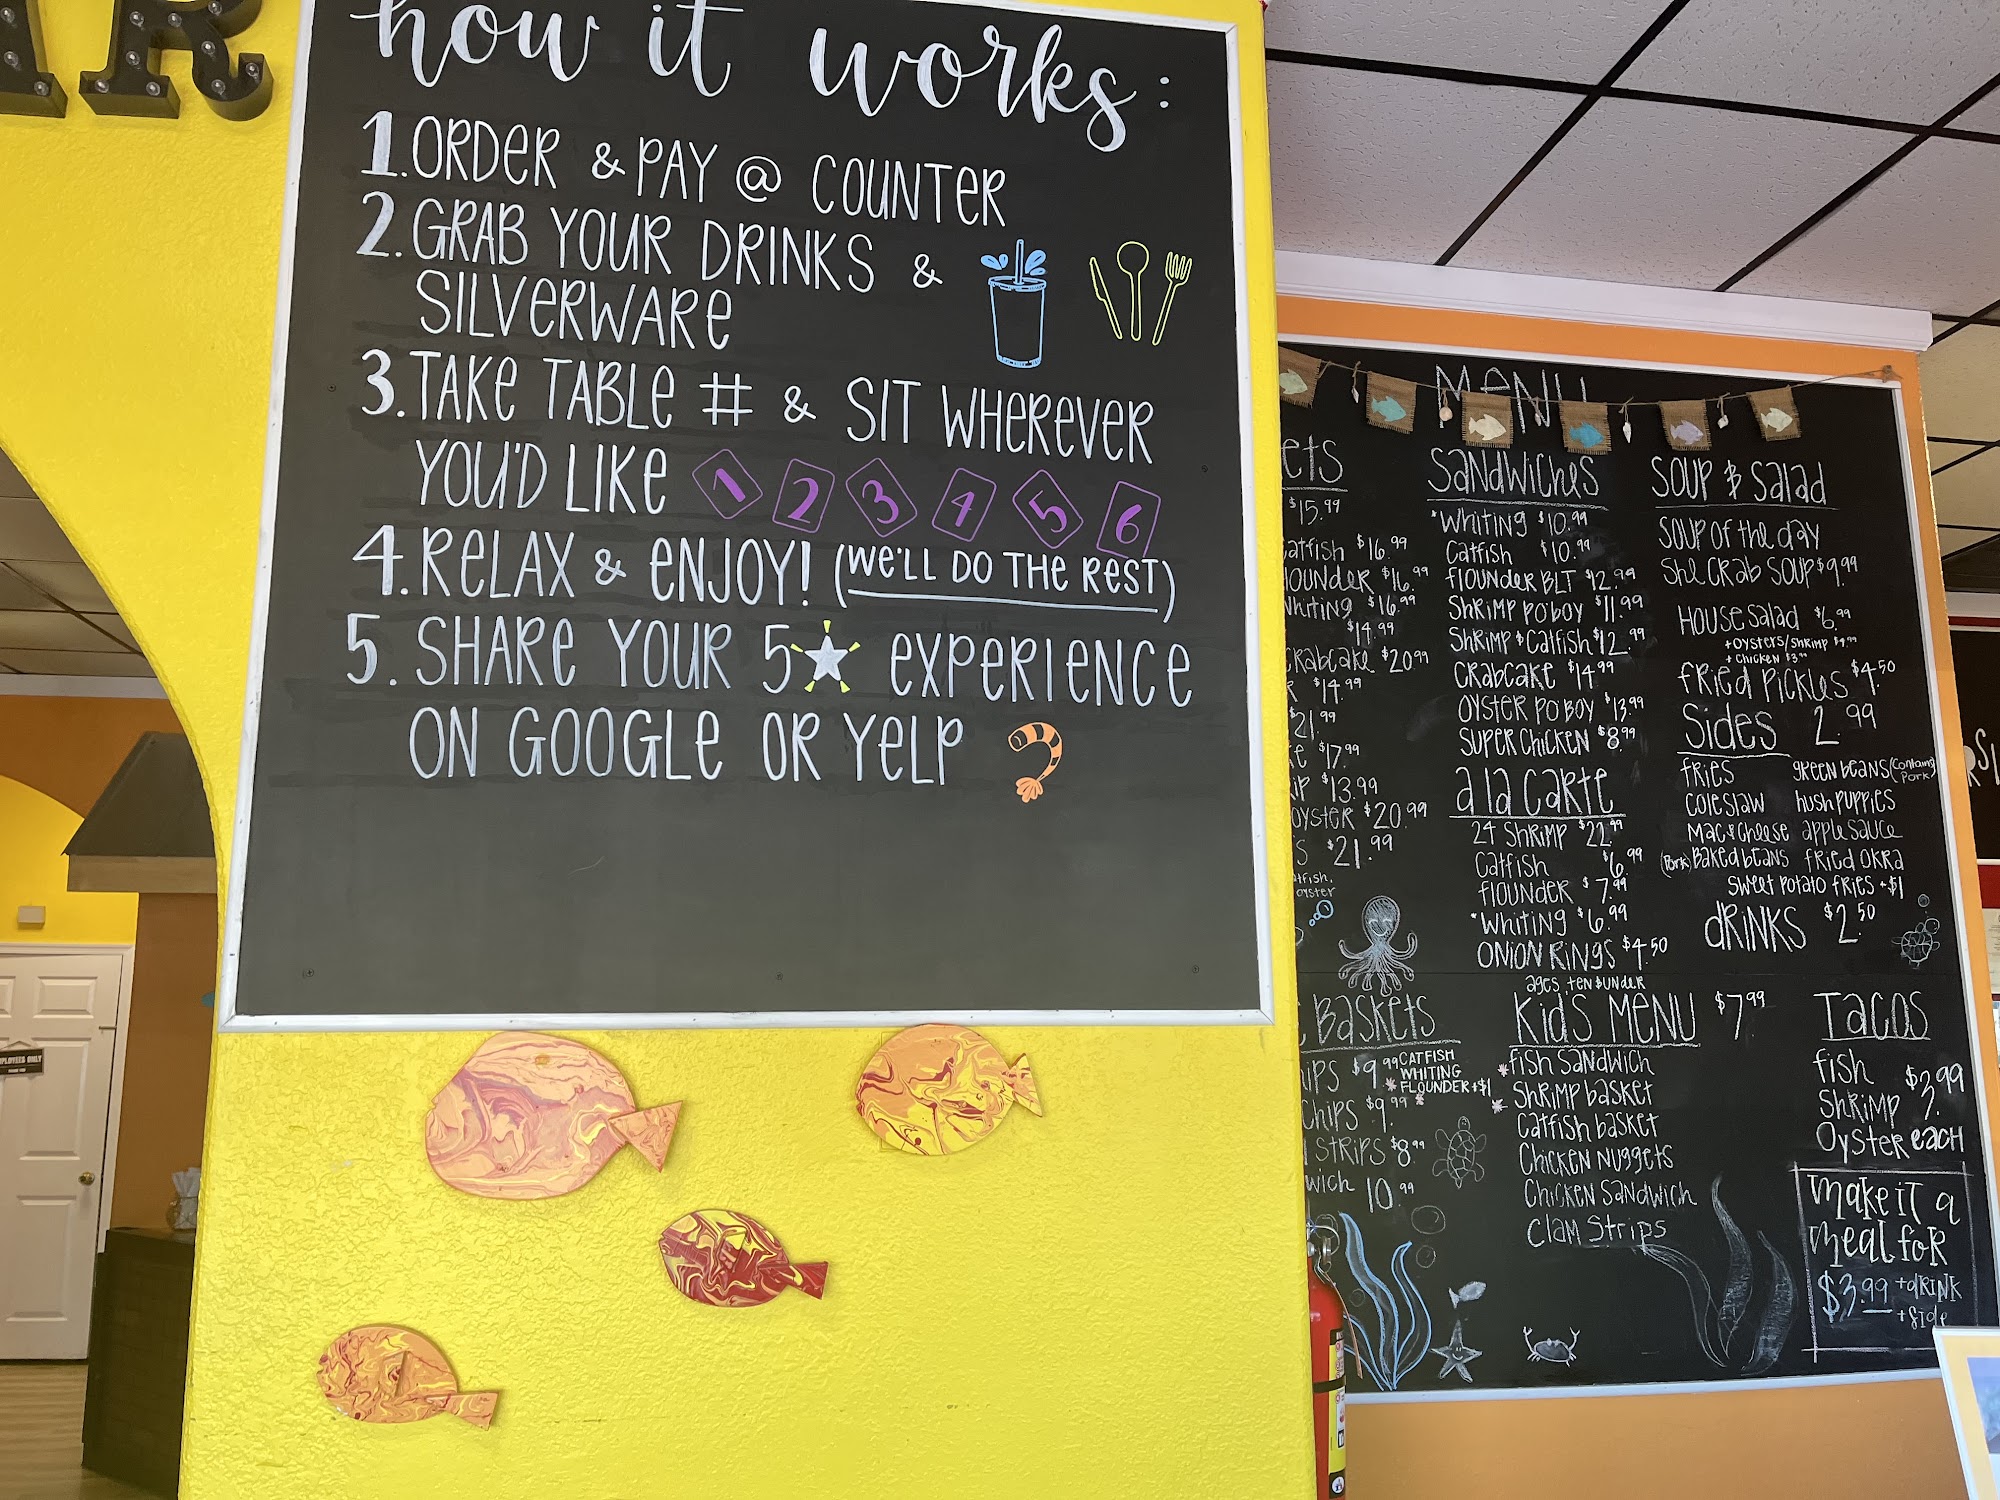 AR
how it works:
1. ORDER & PAY @ COUNTER
2. GRAB YOUR DRINKS &
SILVERWARE
3. TAKE TABLE # & SIT WHEREVER
YOU'D LIKE 1 2 3 4 5 6
4. RELAX & ENJOY! (WE'LL DO THE REST)
5. SHARE YOUR 5 EXPERIENCE
ON GOOGLE OR YELP
EMPLOYEES ONLY
MENU
ets
$15.99
atfish $16.99
lounder $16.99
Whiting $16.99
$14.99
CRABCAKE $20.99
R $14.99
21.99
ke $17.99
ip $13.99
OYSTER $20.99
S $21.99
atfish,
oyster
Sandwiches
*Whiting $10.99
Catfish $10.99
flounder BLT $12.99
Shrimp po boy $11.99
Shrimp & Catfish $12.99
CRabCake $14.99
Oyster po boy $13.99
Super Chicken $8.99
a la carte
24 Shrimp $22.99
Catfish $6.99
flounder $7.99
*Whiting $6.99
ONION RINGS $4.50
SOUP & Salad
SOUP of the day
She CRab SOUP $9.99
HOUSE Salad $6.99
+ OYSTERS/SHRIMP $9.99
+ CHICKEN $3.99
fRied PICKLES $4.50
Sides 2.99
fries green beans (Contains Pork)
Coleslaw hush puppies
Mac & Cheese apple sauce
(Pork) Baked beans fried OKRA
Sweet potato fries +$1
dRiNKS $2.50
BASKETS
ips $9.99 CATFISH
WHITING
FLOUNDER +$1
Chips $9.99
STRIPS $8.99
wich 10.99
ages ten & under
Kid's MENU $7.99
fish Sandwich
Shrimp basket
Catfish basket
Chicken Nuggets
Chicken Sandwich
Clam Strips
TACOS
fish $3.99
Shrimp
Oyster each
make it a
meal for
$3.99 +dRINK
+Side